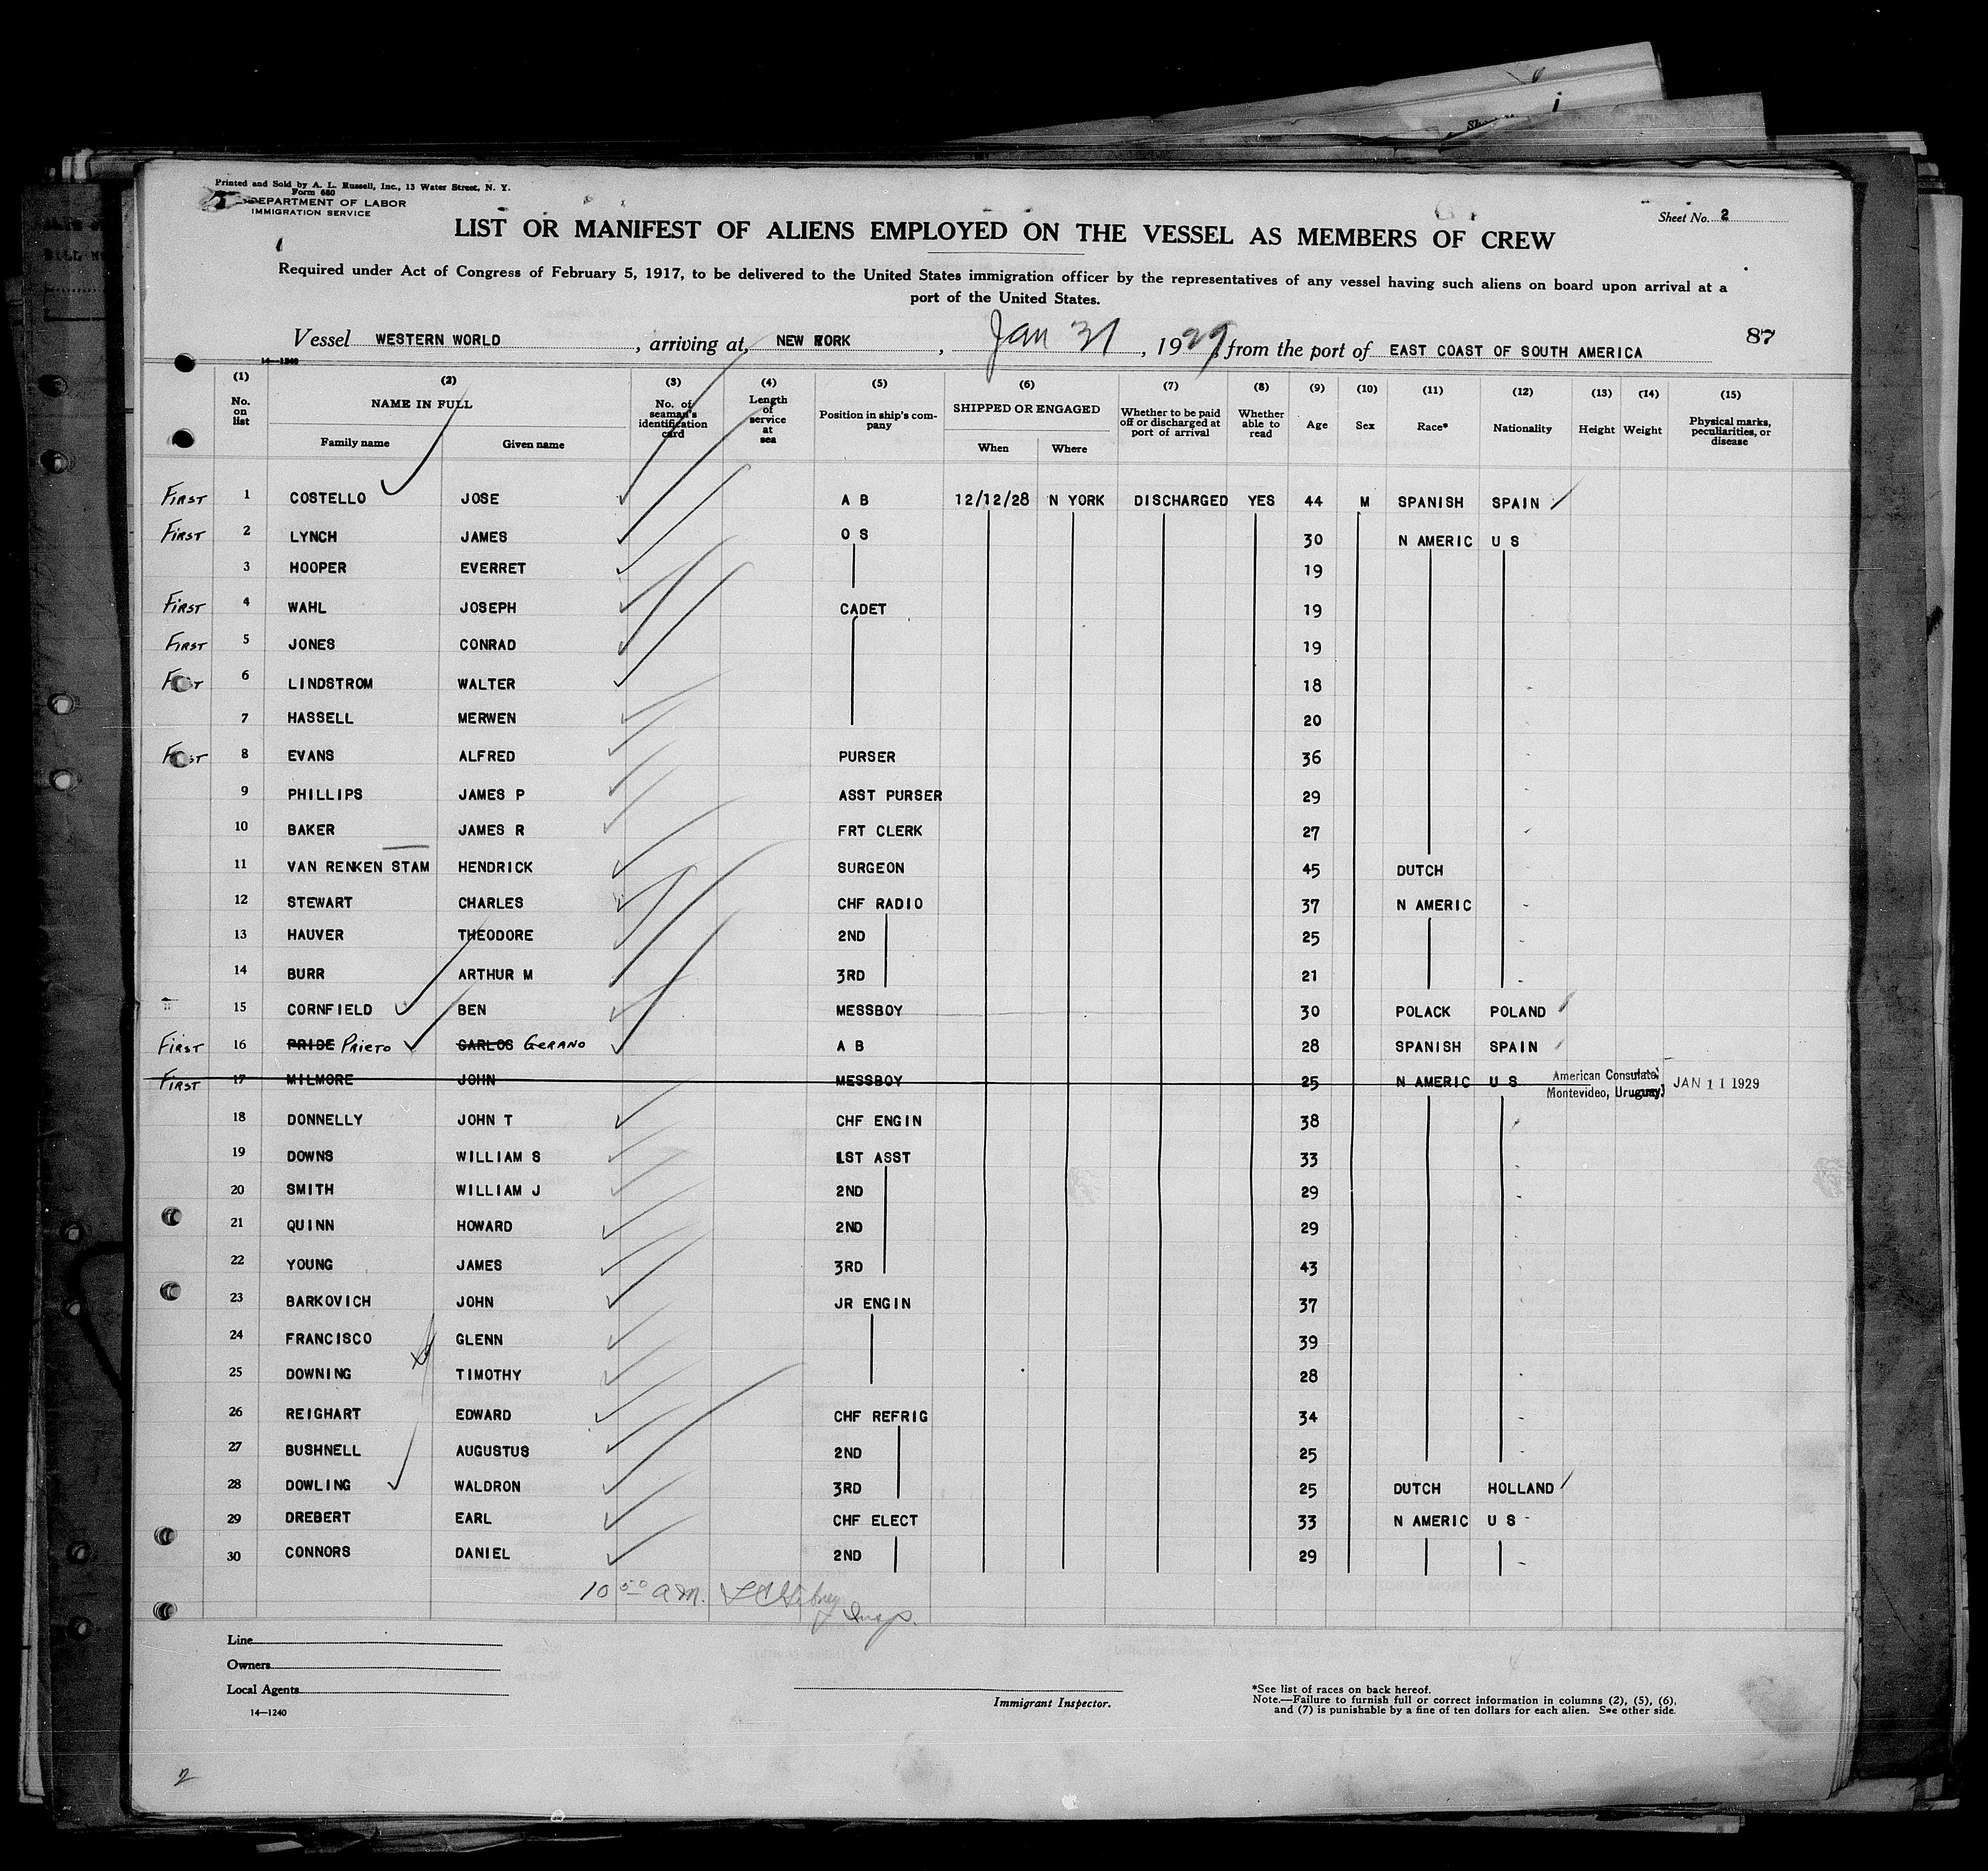 Printed and Sold by A. L. Russell, Inc., 13 Water Street, N. Y.
Form 680
DEPARTMENT OF LABOR
IMMIGRATION SERVICE
Sheet No. 2
LIST OR MANIFEST OF ALIENS EMPLOYED ON THE VESSEL AS MEMBERS OF CREW
Required under Act of Congress of February 5, 1917, to be delivered to the United States immigration officer by the representatives of any vessel having such aliens on board upon arrival at a
port of the United States.
87
Vessel WESTERN WORLD, arriving at NEW YORK, Jan 31, 1929, from the port of EAST COAST OF SOUTH AMERICA
14—1240
(1) (2) (3) (4) (5) (6) (7) (8) (9) (10) (11) (12) (13) (14) (15)
No. on list NAME IN FULL Family name Given name No. of seaman's identification card Length of service at sea Position in ship's company SHIPPED OR ENGAGED When Where Whether to be paid off or discharged at port of arrival Whether able to read Age Sex Race* Nationality Height Weight Physical marks, peculiarities, or disease
First 1 COSTELLO JOSE A B 12/12/28 N YORK DISCHARGED YES 44 M SPANISH SPAIN
First 2 LYNCH JAMES O S 30 N AMERIC U S
3 HOOPER EVERRET 19
First 4 WAHL JOSEPH CADET 19
First 5 JONES CONRAD 19
First 6 LINDSTROM WALTER 18
7 HASSELL MERWEN 20
First 8 EVANS ALFRED PURSER 36
9 PHILLIPS JAMES P ASST PURSER 29
10 BAKER JAMES R FRT CLERK 27
11 VAN RENKEN STAM HENDRICK SURGEON 45 DUTCH
12 STEWART CHARLES CHF RADIO 37 N AMERIC
13 HAUVER THEODORE 2ND 25
14 BURR ARTHUR M 3RD 21
15 CORNFIELD BEN MESSBOY 30 POLACK POLAND
First 16 PRIDE Prieto CARLOS Gerano A B 28 SPANISH SPAIN
First 17 MILMORE JOHN MESSBOY 25 N AMERIC U S American Consulate, Montevideo, Uruguay. JAN 11 1929
18 DONNELLY JOHN T CHF ENGIN 38
19 DOWNS WILLIAM S 1ST ASST 33
20 SMITH WILLIAM J 2ND 29
21 QUINN HOWARD 2ND 29
22 YOUNG JAMES 3RD 43
23 BARKOVICH JOHN JR ENGIN 37
24 FRANCISCO GLENN 39
25 DOWNING TIMOTHY 28
26 REIGHART EDWARD CHF REFRIG 34
27 BUSHNELL AUGUSTUS 2ND 25
28 DOWLING WALDRON 3RD 25 DUTCH HOLLAND
29 DREBERT EARL CHF ELECT 33 N AMERIC U S
30 CONNORS DANIEL 2ND 29
10 50 a.m.
Insp.
Line
Owners
Local Agents
14—1240
Immigrant Inspector.
*See list of races on back hereof.
Note.—Failure to furnish full or correct information in columns (2), (5), (6),
and (7) is punishable by a fine of ten dollars for each alien. See other side.
2